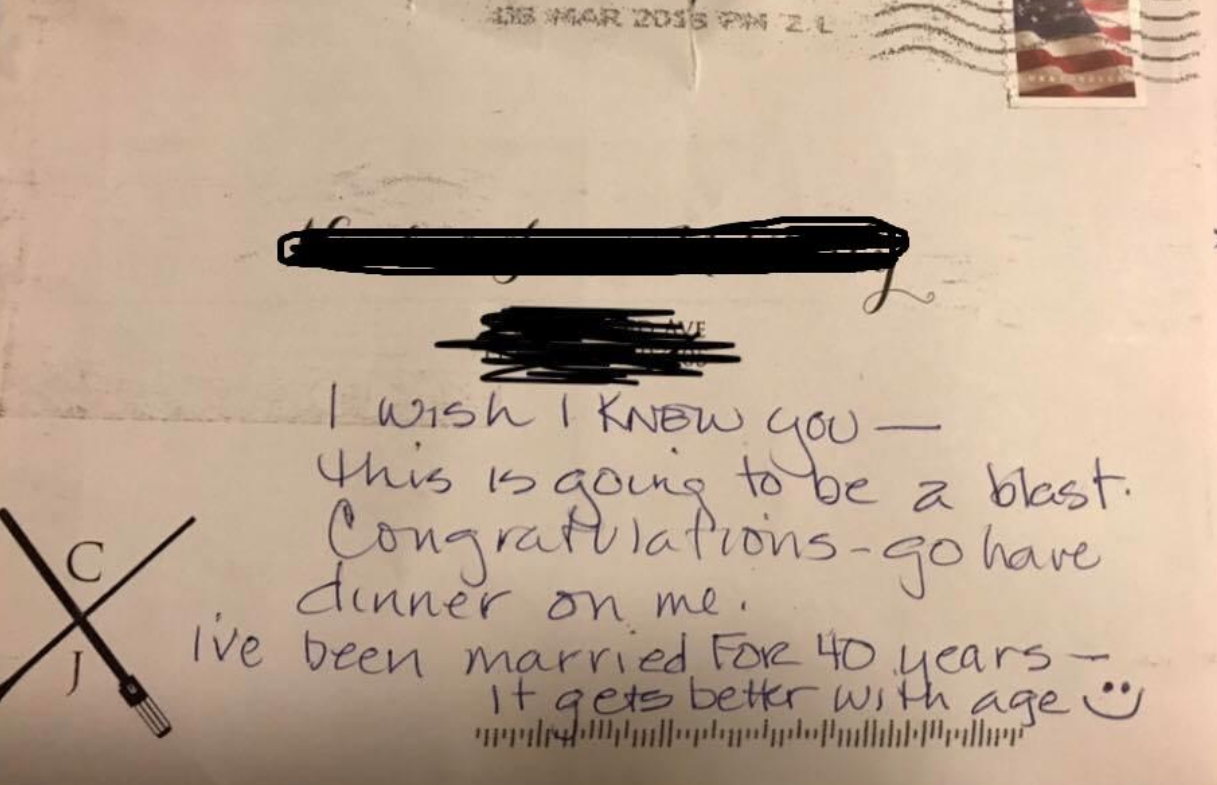 MAR PM
AVE
I wish I KNEW you —
this is going to be a blast.
Congratulations - go have
dinner on me.
C
J
I've been married FOR 40 years —
It gets better with age